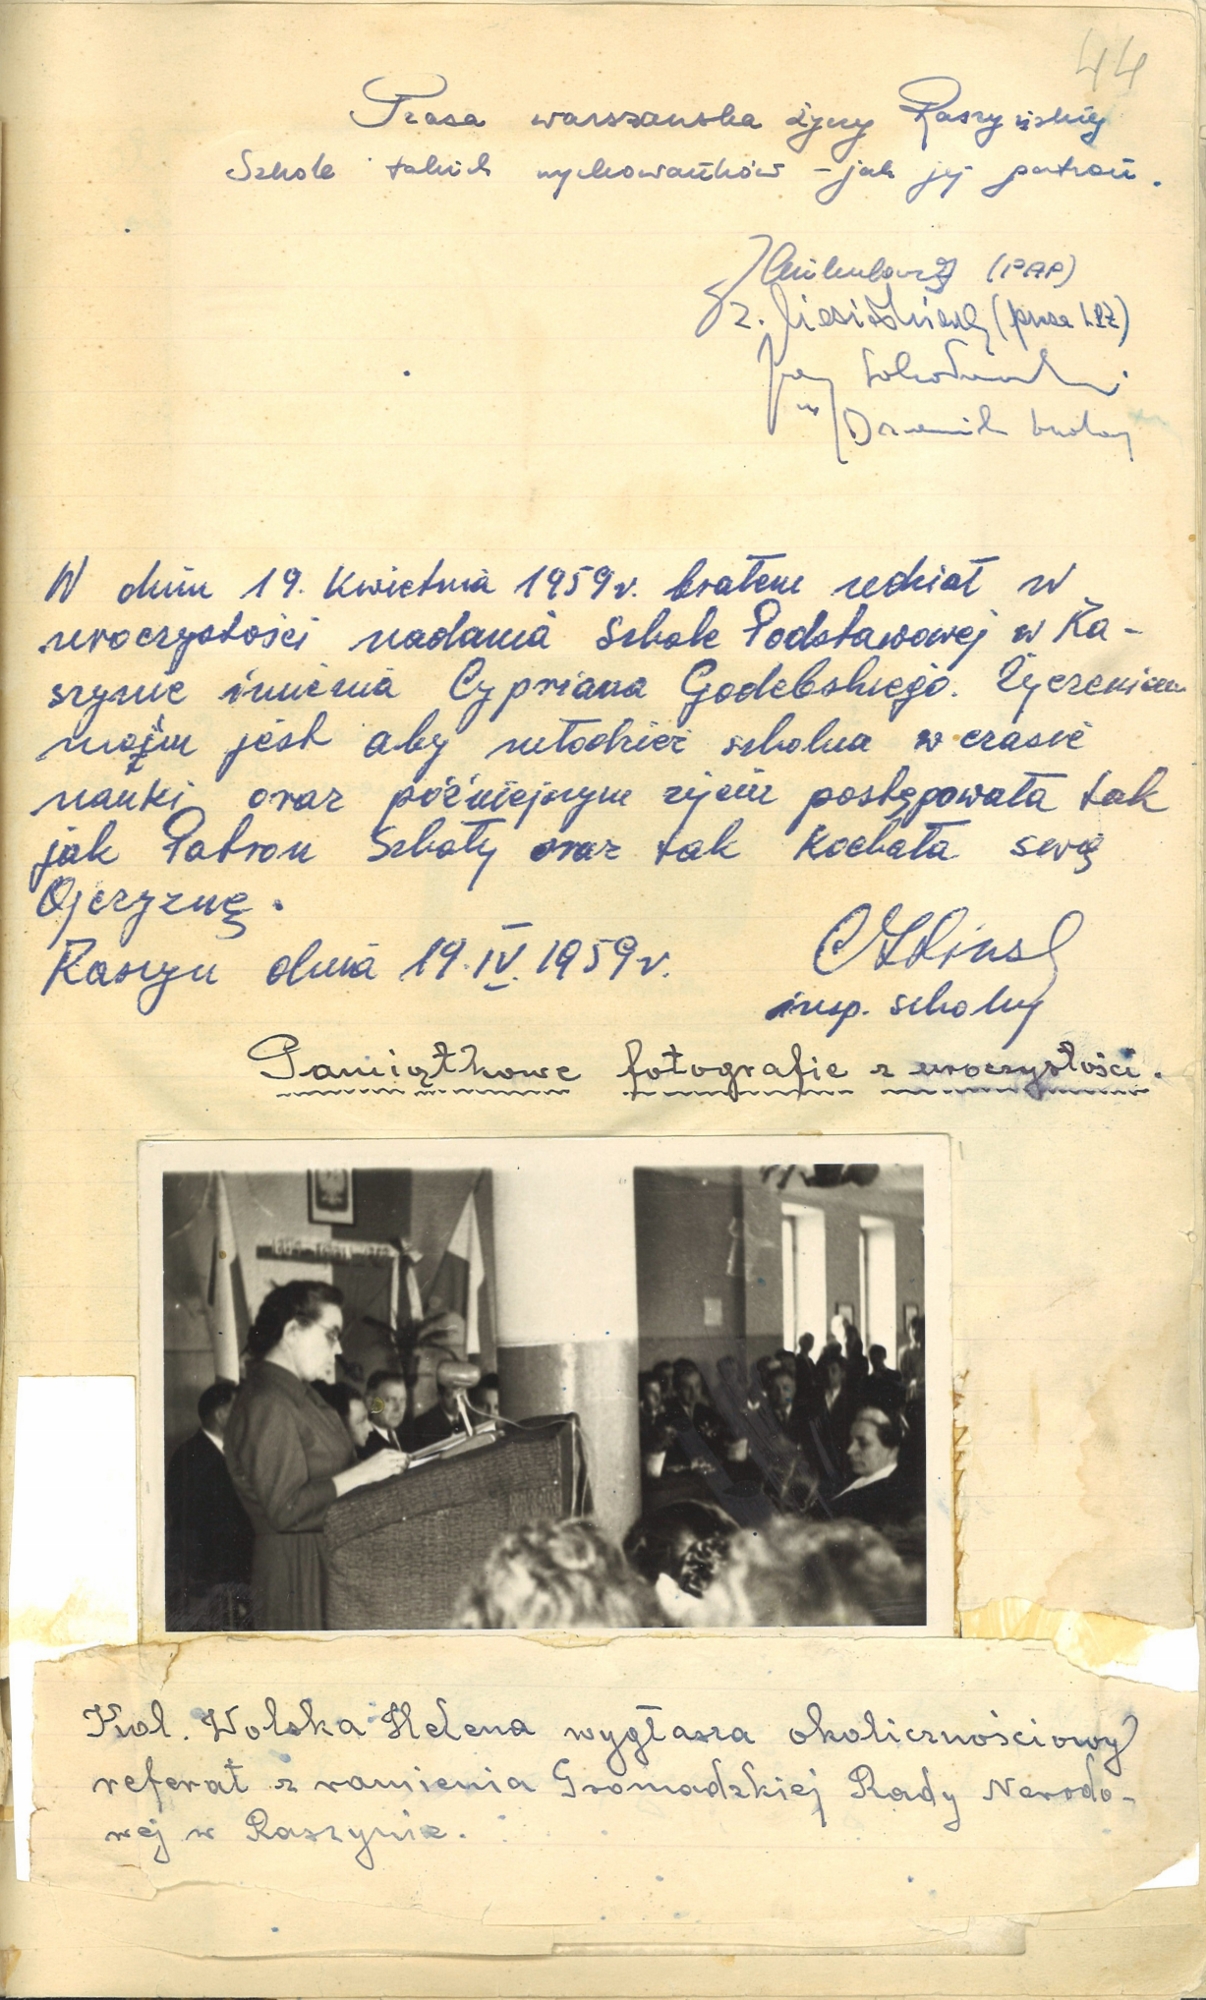 44
Prasa warszawska życzy Raszyńskiej
Szkole takich wychowanków - jak jej patron.
(PAP)
(prasa LPŻ)
Jerzy
W dniu 19. Kwietnia 1959r. brałem udział w
uroczystości nadania Szkole Podstawowej w Ra-
szynie imienia Cypriana Godebskiego. Życzeniem
moim jest aby młodzież szkolna w czasie
nauki oraz późniejszym życiu postępowała tak
jak Patron Szkoły oraz tak kochała swą
Ojczyznę.
Raszyn dnia 19.IV.1959r.
insp. szkolny
Pamiątkowe fotografie z uroczystości.
Kol. Wolska Helena wygłasza okolicznościowy
referat z ramienia Gromadzkiej Rady Narodo-
wej w Raszynie.